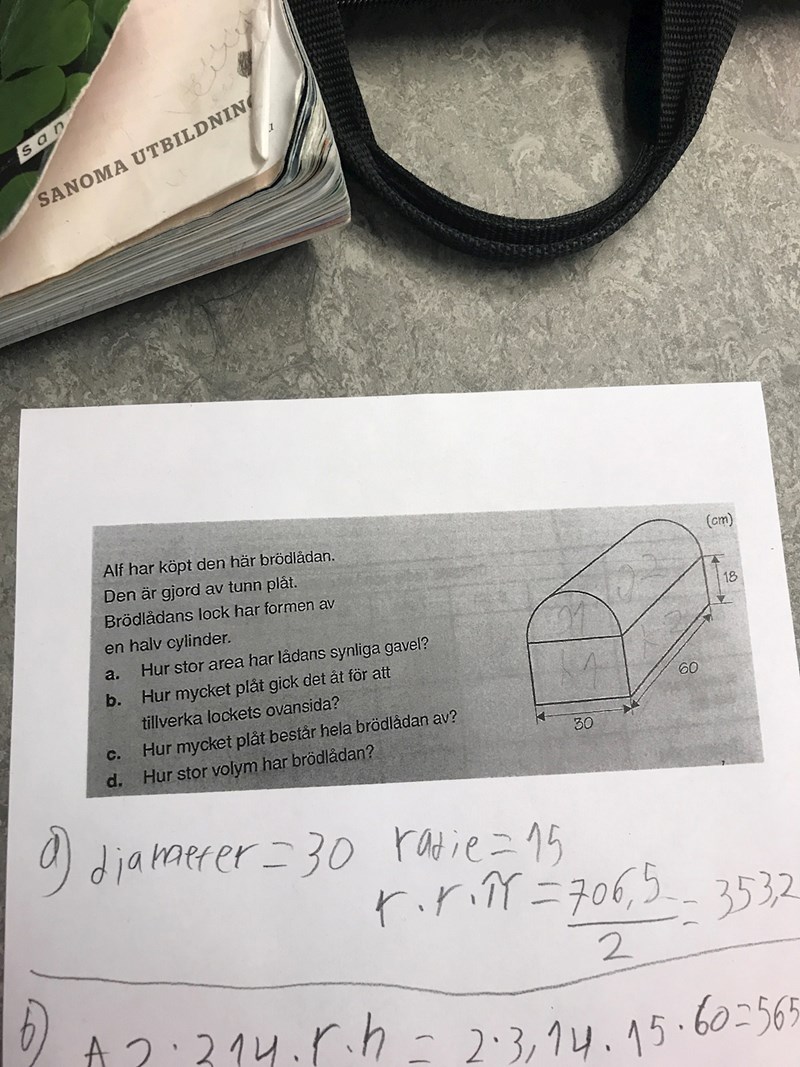 san
SANOMA UTBILDNING
Alf har köpt den här brödlådan.
Den är gjord av tunn plåt.
Brödlådans lock har formen av
en halv cylinder.
a. Hur stor area har lådans synliga gavel?
b. Hur mycket plåt gick det åt för att
tillverka lockets ovansida?
c. Hur mycket plåt består hela brödlådan av?
d. Hur stor volym har brödlådan?
(cm)
18
60
30
a) diameter = 30 radie = 15
r · r · π = 706,5 / 2 = 353,2
b) A 2 · 3 14 · r · h = 2 · 3,14 · 15 · 60 = 565